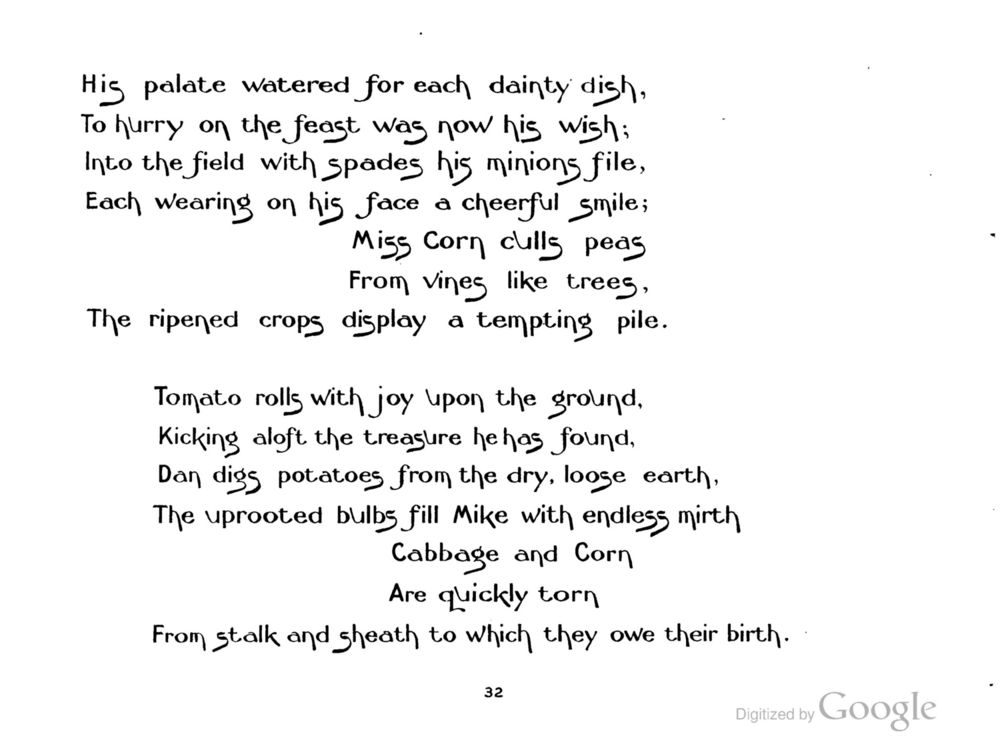 His palate watered for each dainty dish,
To hurry on the feast was now his wish;
Into the field with spades his minions file,
Each wearing on his face a cheerful smile;
Miss Corn culls peas
From vines like trees,
The ripened crops display a tempting pile.
Tomato rolls with joy upon the ground,
Kicking aloft the treasure he has found,
Dan digs potatoes from the dry, loose earth,
The uprooted bulbs fill Mike with endless mirth
Cabbage and Corn
Are quickly torn
From stalk and sheath to which they owe their birth.
32
Digitized by Google